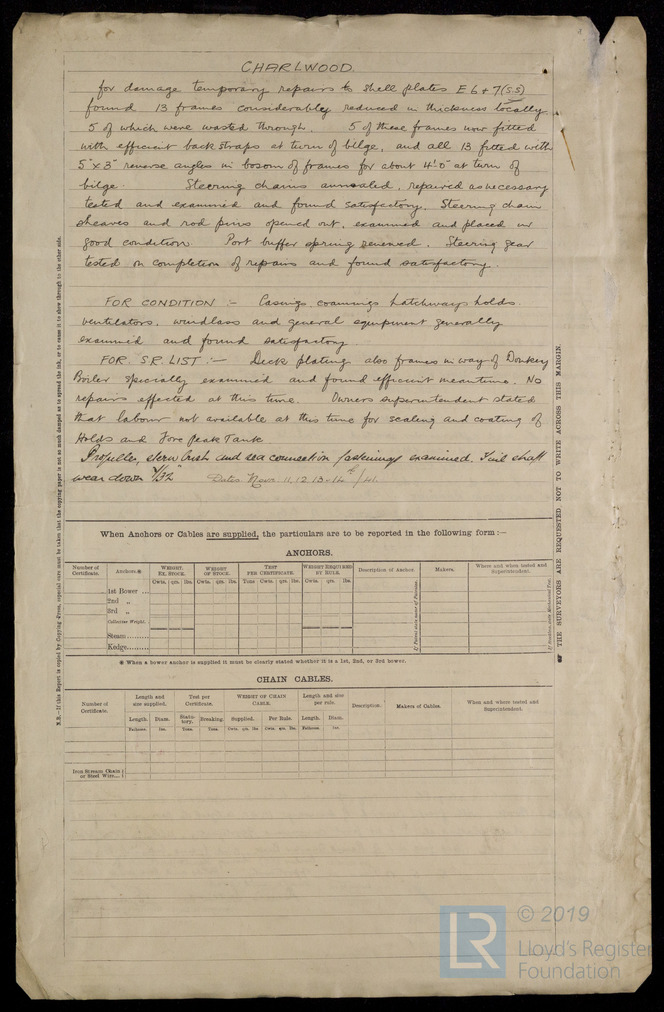 CHARLWOOD.
for damage temporary repairs to shell plates E 6 + 7 (S.S)
found 13 frames considerably reduced in thickness locally
5 of which were wasted through. 5 of these frames now fitted
with efficient back straps at turn of bilge, and all 13 fitted with
5" x 3" reverse angles in bosom of frames for about 4'.0" at turn of
bilge. Steering chains annealed, repaired as necessary
tested and examined and found satisfactory. Steering chain
sheaves and rod pins opened out, examined and placed in
good condition. Port buffer spring renewed. Steering gear
tested on completion of repairs and found satisfactory.
FOR CONDITION :- Casings, coamings hatchways holds
ventilators, windlass and general equipment generally
examined and found satisfactory
FOR S.R. LIST :- Deck plating also frames in way of Donkey
Boiler specially examined and found efficient meantime. No
repairs effected at this time. Owners superintendent stated
that labour not available at this time for scaling and coating of
Holds and Fore Peak Tank
Propeller, stern bush and sea connection fastenings examined. Tail shaft
wear down /32" Dates Nov. 11, 12 13 - 14th/41.
When Anchors or Cables are supplied, the particulars are to be reported in the following form :—
ANCHORS.
Number of Certificate. Anchors.* WEIGHT. EX. STOCK. WEIGHT OF STOCK. TEST PER CERTIFICATE. WEIGHT REQUIRED BY RULE. Description of Anchor. Makers. Where and when tested and Superintendent.
Cwts. qrs. lbs. Cwts. qrs. lbs. Tons Cwts. qrs. lbs. Cwts. qrs. lbs.
1st Bower ...
2nd „
3rd „
Collective Weight.
Stream........
Kedge........
* When a bower anchor is supplied it must be clearly stated whether it is a 1st, 2nd, or 3rd bower.
CHAIN CABLES.
Number of Certificate. Length and size supplied. Test per Certificate. WEIGHT OF CHAIN CABLE. Length and size per rule. Description. Makers of Cables. When and where tested and Superintendent.
Length. Diam. Statutory. Breaking. Supplied. Per Rule. Length. Diam.
Fathoms. Ins. Tons. Tons. Cwts. qrs. lbs Cwts. qrs. lbs. Fathoms. Ins.
Iron Stream Chain
or Steel Wire...
N.B.—If this Report is copied by Copying-Press, especial care must be taken that the copying paper is not so much damped as to spread the ink, or to cause it to show through to the other side.
THE SURVEYORS ARE REQUESTED NOT TO WRITE ACROSS THIS MARGIN.
LR
© 2019
Lloyd's Register
Foundation